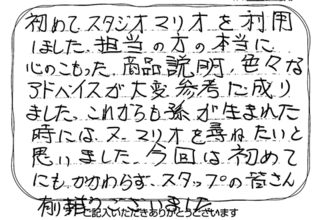 初めてスタジオマリオを利用
しました。担当の方の本当に
心のこもった、商品説明、色々な
アドバイスが大変参考に成り
ました。これからも孫が生まれた
時には、又マリオを尋ねたいと
思いました。今回は初めて
にもかかわらず、スタッフの皆さん
有難うございました
ご記入いただきありがとうございます